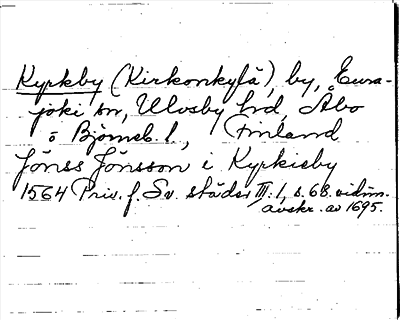 Kyrkby (Kirkonkylä), by, Eura-
joki sn, Ulvsby hd, Åbo
o Björneb. l., Finland
Jönss Jönsson i Kyrkieby
1564 Priv. f. Sv. städer III:1, s. 68. vidim.
avskr. av 1695.